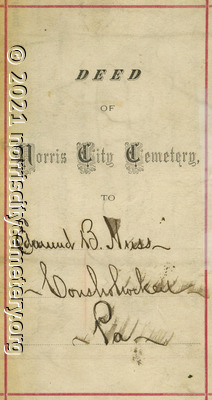 DEED
OF
Norris City Cemetery,
TO
Edmund B. Nuss
Conshohocken
Pa
© 2021 norriscitycemetery.org